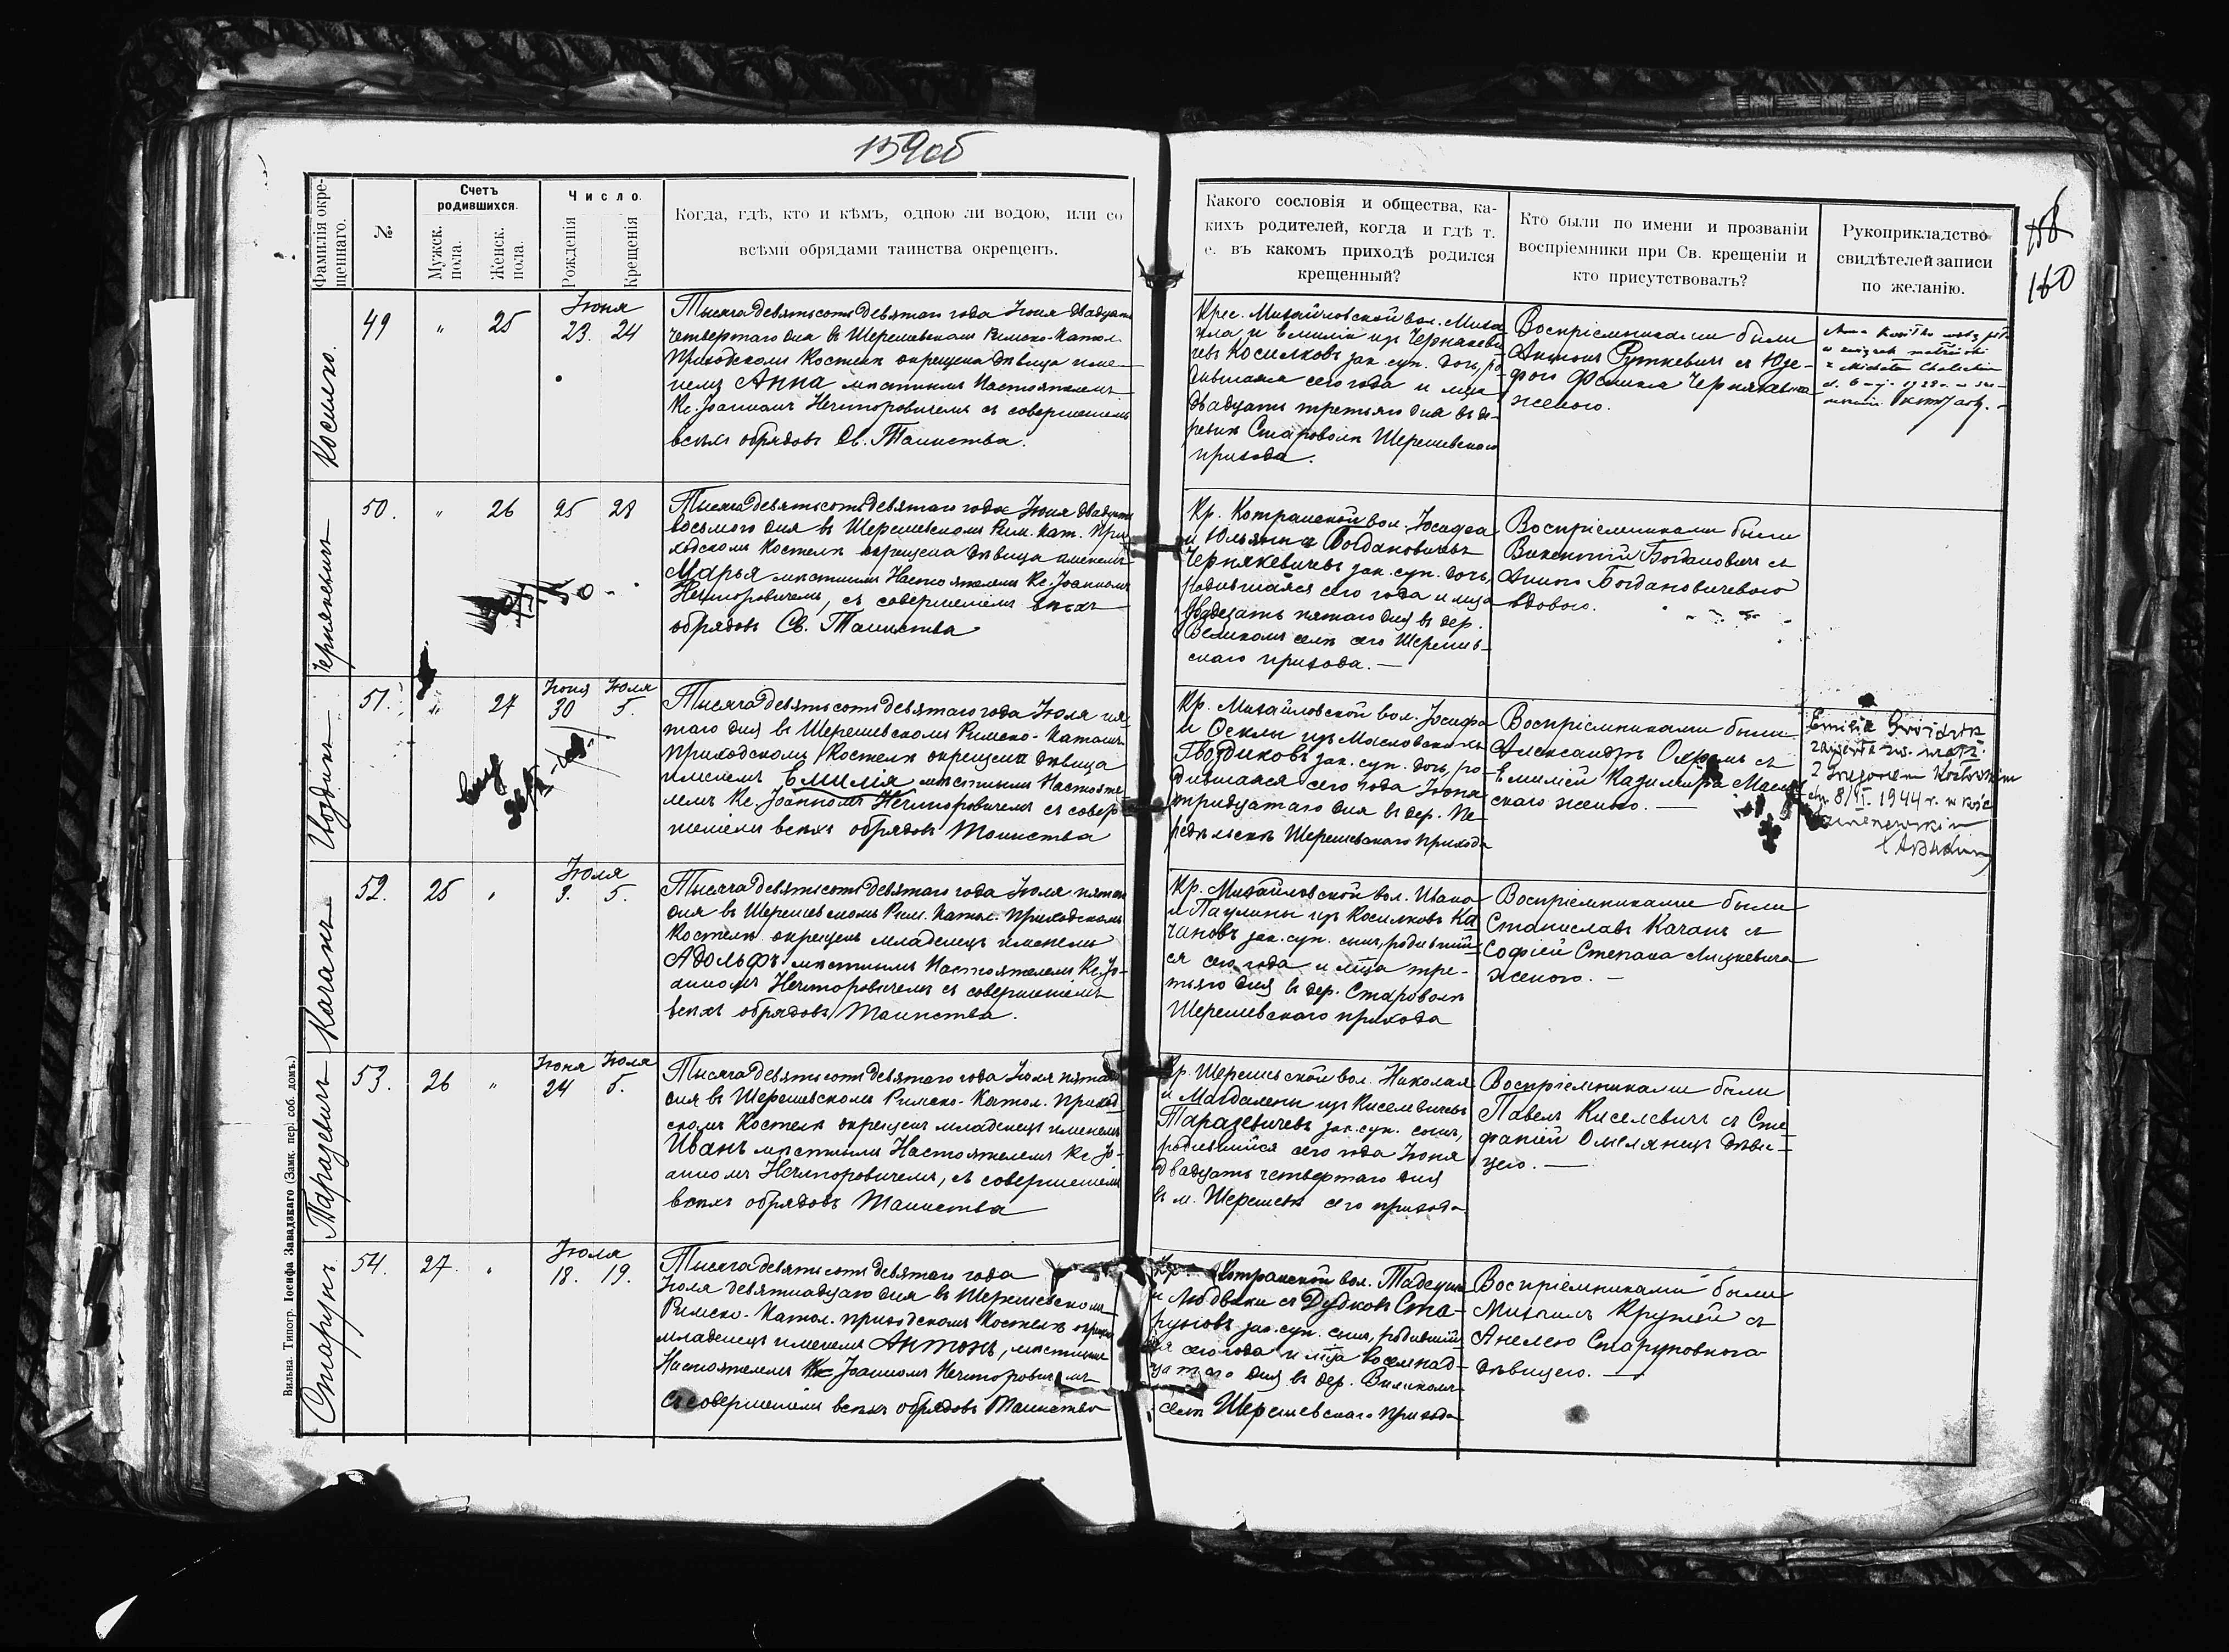 159об
158
160
Фамилія окре-
щеннаго.
№
Счетъ
родившихся.
Мужск.
пола.
Женск.
пола.
Число.
Рожденія
Крещенія
Когда, гдѣ, кто и кѣмъ, одною ли водою, или со
всѣми обрядами таинства окрещенъ.
Какого сословія и общества, ка-
кихъ родителей, когда и гдѣ т.
е. въ какомъ приходѣ родился
крещенный?
Кто были по имени и прозваніи
воспріемники при Св. крещеніи и
кто присутствовалъ?
Рукоприкладство
свидѣтелей записи
по желанію.
Косилко.
49 " 25
Іюня
23. 24
Тысяча девятьсотъ девятаго года Іюня двадцать
четвертаго дня въ Шерешевскомъ Римско-Катол.
Приходскомъ Костелѣ окрещена дѣвица име-
немъ Анна мѣстнымъ Настоятелемъ
Кс. Іоанномъ Нечипоровичемъ съ совершеніемъ
всѣхъ обрядовъ Св. Таинства.
Крес. Михайловской вол. Миха-
ила и Емиліи изъ Чернякеви-
чевъ Косилковъ зак. суп. дочь, ро-
дившаяся сего года и мѣца
двадцать третьяго дня въ де-
ревнѣ Староволѣ Шерешевскаго
прихода.
Воспріемниками были
Антонъ Руткевичъ съ Юзе-
фою Феликса Чернякевича
женою.
Чернякевичъ
50. " 26 25 28
Тысяча девятьсотъ девятаго года Іюня двадцать
восьмого дня въ Шерешевскомъ Рим. Кат. При-
ходскомъ Костелѣ окрещена дѣвица именемъ
Марья мѣстнымъ Настоятелемъ Кс. Іоанномъ
Нечипоровичемъ, съ совершеніемъ всѣхъ
обрядовъ Св. Таинства
Кр. Котранской вол. Іосифа
и Юльяны Богдановичевъ
Чернякевичевъ зак. суп. дочь,
родившаяся сего года и мѣца
двадцать пятаго дня въ дер.
Великомъ селѣ сего Шерешев-
скаго прихода.
Воспріемниками были
Викентій Богдановичъ съ
Анною Богдановичевою
вдовою.
Гвоздикъ
51. " 27
Іюня Іюля
30 5.
Тысяча девятьсотъ девятаго года Іюля пя-
таго дня въ Шерешевскомъ Римско-Католич.
Приходскомъ Костелѣ окрещена дѣвица
именемъ Емилія мѣстнымъ Настояте-
лемъ Кс. Іоанномъ Нечипоровичемъ съ совер-
шеніемъ всѣхъ обрядовъ Таинства
Кр. Михайловской вол. Іосифа
и Феклы изъ Масловскихъ
Гвоздиковъ зак. суп. дочь, ро-
дившаяся сего года Іюня
тридцатаго дня въ дер.
Шерешевскаго прихода
Воспріемниками были
Александръ съ
Емиліей Казиміра
скаго женою.
Emilia Gwoździk
zawarła zw. małż.
z
dn. 8/VI. 1944 r. w kośc
Качанъ
52. 25 "
Іюля
3. 5.
Тысяча девятьсотъ девятаго года Іюля пятаго
дня въ Шерешевскомъ Рим. Катол. Приходскомъ
Костелѣ окрещенъ младенецъ именемъ
Адольфъ мѣстнымъ Настоятелемъ Кс. Іо-
анномъ Нечипоровичемъ съ совершеніемъ
всѣхъ обрядовъ Таинства.
Кр. Михайловской вол. Ивана
и Паулины изъ Косилковъ Ка-
чановъ зак. суп. сынъ, родившій-
ся сего года и мѣца тре-
тьяго дня въ дер. Староволѣ
Шерешевскаго прихода
Воспріемниками были
Станиславъ Качанъ съ
Софіей Степана Лицкевича
женою.
Таразевичъ
53. 26 "
Іюня Іюля
24 5.
Тысяча девятьсотъ девятаго года Іюля пятаго
дня въ Шерешевскомъ Римско-Катол. Приход-
скомъ Костелѣ окрещенъ младенецъ именемъ
Иванъ мѣстнымъ Настоятелемъ Кс. Іо-
анномъ Нечипоровичемъ, съ совершеніемъ
всѣхъ обрядовъ Таинства
Кр. Шерешевской вол. Николая
и Магдалены изъ Киселевичевъ
Таразевичевъ зак. суп. сынъ,
родившійся сего года Іюня
двадцать четвертаго дня
въ м. Шерешевѣ сего прихода
Воспріемниками были
Павелъ Киселевичъ съ Сте-
фаніей Омелянецъ дѣви-
цею.
Старунъ
54. 27. "
Іюля
18. 19.
Тысяча девятьсотъ девятаго года
Іюля девятнадцаго дня въ Шерешевскомъ
Римско-Катол. приходскомъ Костелѣ окрещ.
младенецъ именемъ Антонъ, мѣстнымъ
Настоятелемъ Кс Іоанномъ Нечипоровичемъ
съ совершеніемъ всѣхъ обрядовъ Таинства
Кр. Котранской вол. Тадеуша
и Людвики съ Дудковъ Ста-
руновъ зак. суп. сынъ, родившій-
ся сего года и мѣца восемнад-
цатаго дня въ дер. Великомъ
селѣ Шерешевскаго прихода
Воспріемниками были
Михаилъ Кружей съ
Анелею Старуновною
дѣвицею.
Вильна. Типогр. Іосифа Завадзкаго (Замк. пер. соб. домъ.)